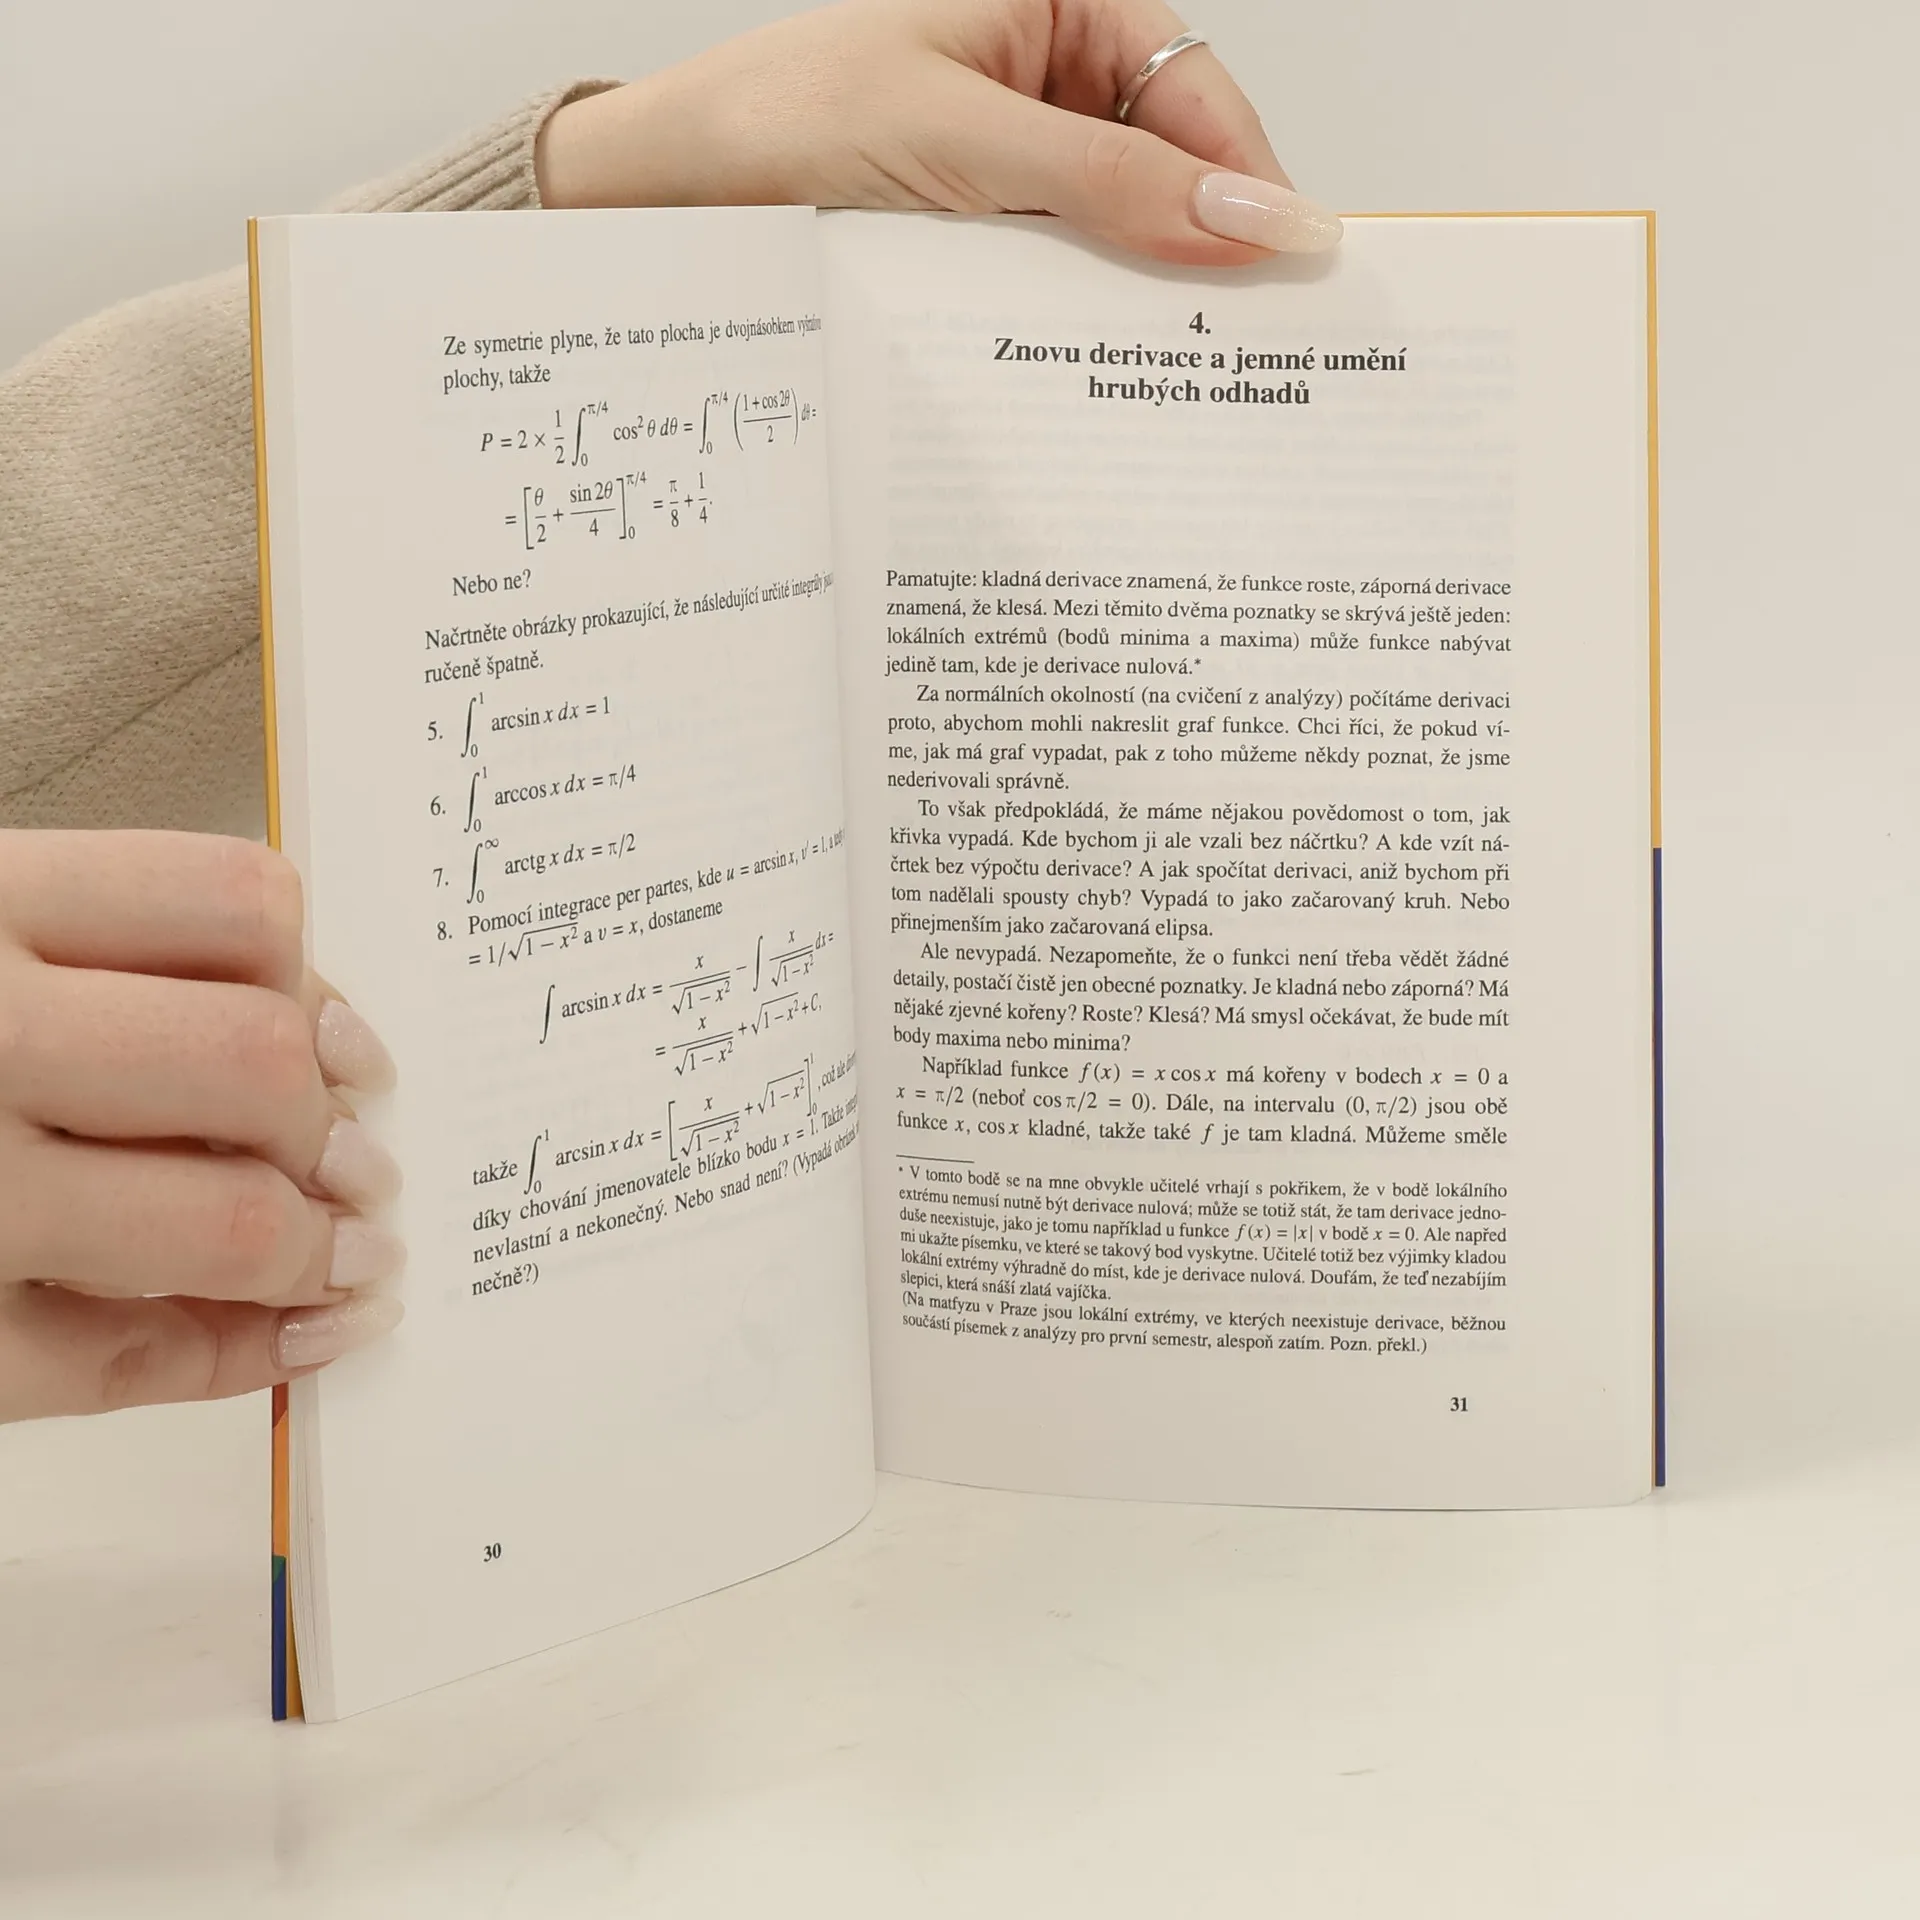 Ze symetrie plyne, že tato plocha je dvojnásobkem
plochy, takže
P = 2 × 1/2 ∫₀^{π/4} cos² θ dθ = ∫₀^{π/4} ((1 + cos 2θ)/2) dθ =
= [θ/2 + sin 2θ/4]₀^{π/4} = π/8 + 1/4.
Nebo ne?
Načrtněte obrázky prokazující, že následující určité integrály
ručeně špatně.
5. ∫₀¹ arcsin x dx = 1
6. ∫₀¹ arccos x dx = π/4
7. ∫₀^∞ arctg x dx = π/2
8. Pomocí integrace per partes, kde u = arcsin x, v′ = 1, a
= 1/√(1 − x²) a v = x, dostaneme
∫ arcsin x dx = x/√(1 − x²) − ∫ x/√(1 − x²) dx =
= x/√(1 − x²) + √(1 − x²) + C,
takže ∫₀¹ arcsin x dx = [x/√(1 − x²) + √(1 − x²)]₀¹, což ale
díky chování jmenovatele blízko bodu x = 1. Takže
nevlastní a nekonečný. Nebo snad není? (Vypadá obrázek
nečně?)
30
4.
Znovu derivace a jemné umění
hrubých odhadů
Pamatujte: kladná derivace znamená, že funkce roste, záporná derivace
znamená, že klesá. Mezi těmito dvěma poznatky se skrývá ještě jeden:
lokálních extrémů (bodů minima a maxima) může funkce nabývat
jedině tam, kde je derivace nulová.*
Za normálních okolností (na cvičení z analýzy) počítáme derivaci
proto, abychom mohli nakreslit graf funkce. Chci říci, že pokud ví-
me, jak má graf vypadat, pak z toho můžeme někdy poznat, že jsme
nederivovali správně.
To však předpokládá, že máme nějakou povědomost o tom, jak
křivka vypadá. Kde bychom ji ale vzali bez náčrtku? A kde vzít ná-
črtek bez výpočtu derivace? A jak spočítat derivaci, aniž bychom při
tom nadělali spousty chyb? Vypadá to jako začarovaný kruh. Nebo
přinejmenším jako začarovaná elipsa.
Ale nevypadá. Nezapomeňte, že o funkci není třeba vědět žádné
detaily, postačí čistě jen obecné poznatky. Je kladná nebo záporná? Má
nějaké zjevné kořeny? Roste? Klesá? Má smysl očekávat, že bude mít
body maxima nebo minima?
Například funkce f(x) = x cos x má kořeny v bodech x = 0 a
x = π/2 (neboť cos π/2 = 0). Dále, na intervalu (0, π/2) jsou obě
funkce x, cos x kladné, takže také f je tam kladná. Můžeme směle
* V tomto bodě se na mne obvykle učitelé vrhají s pokřikem, že v bodě lokálního
extrému nemusí nutně být derivace nulová; může se totiž stát, že tam derivace jedno-
duše neexistuje, jako je tomu například u funkce f(x) = |x| v bodě x = 0. Ale napřed
mi ukažte písemku, ve které se takový bod vyskytne. Učitelé totiž bez výjimky kladou
lokální extrémy výhradně do míst, kde je derivace nulová. Doufám, že teď nezabíjím
slepici, která snáší zlatá vajíčka.
(Na matfyzu v Praze jsou lokální extrémy, ve kterých neexistuje derivace, běžnou
součástí písemek z analýzy pro první semestr, alespoň zatím. Pozn. překl.)
31